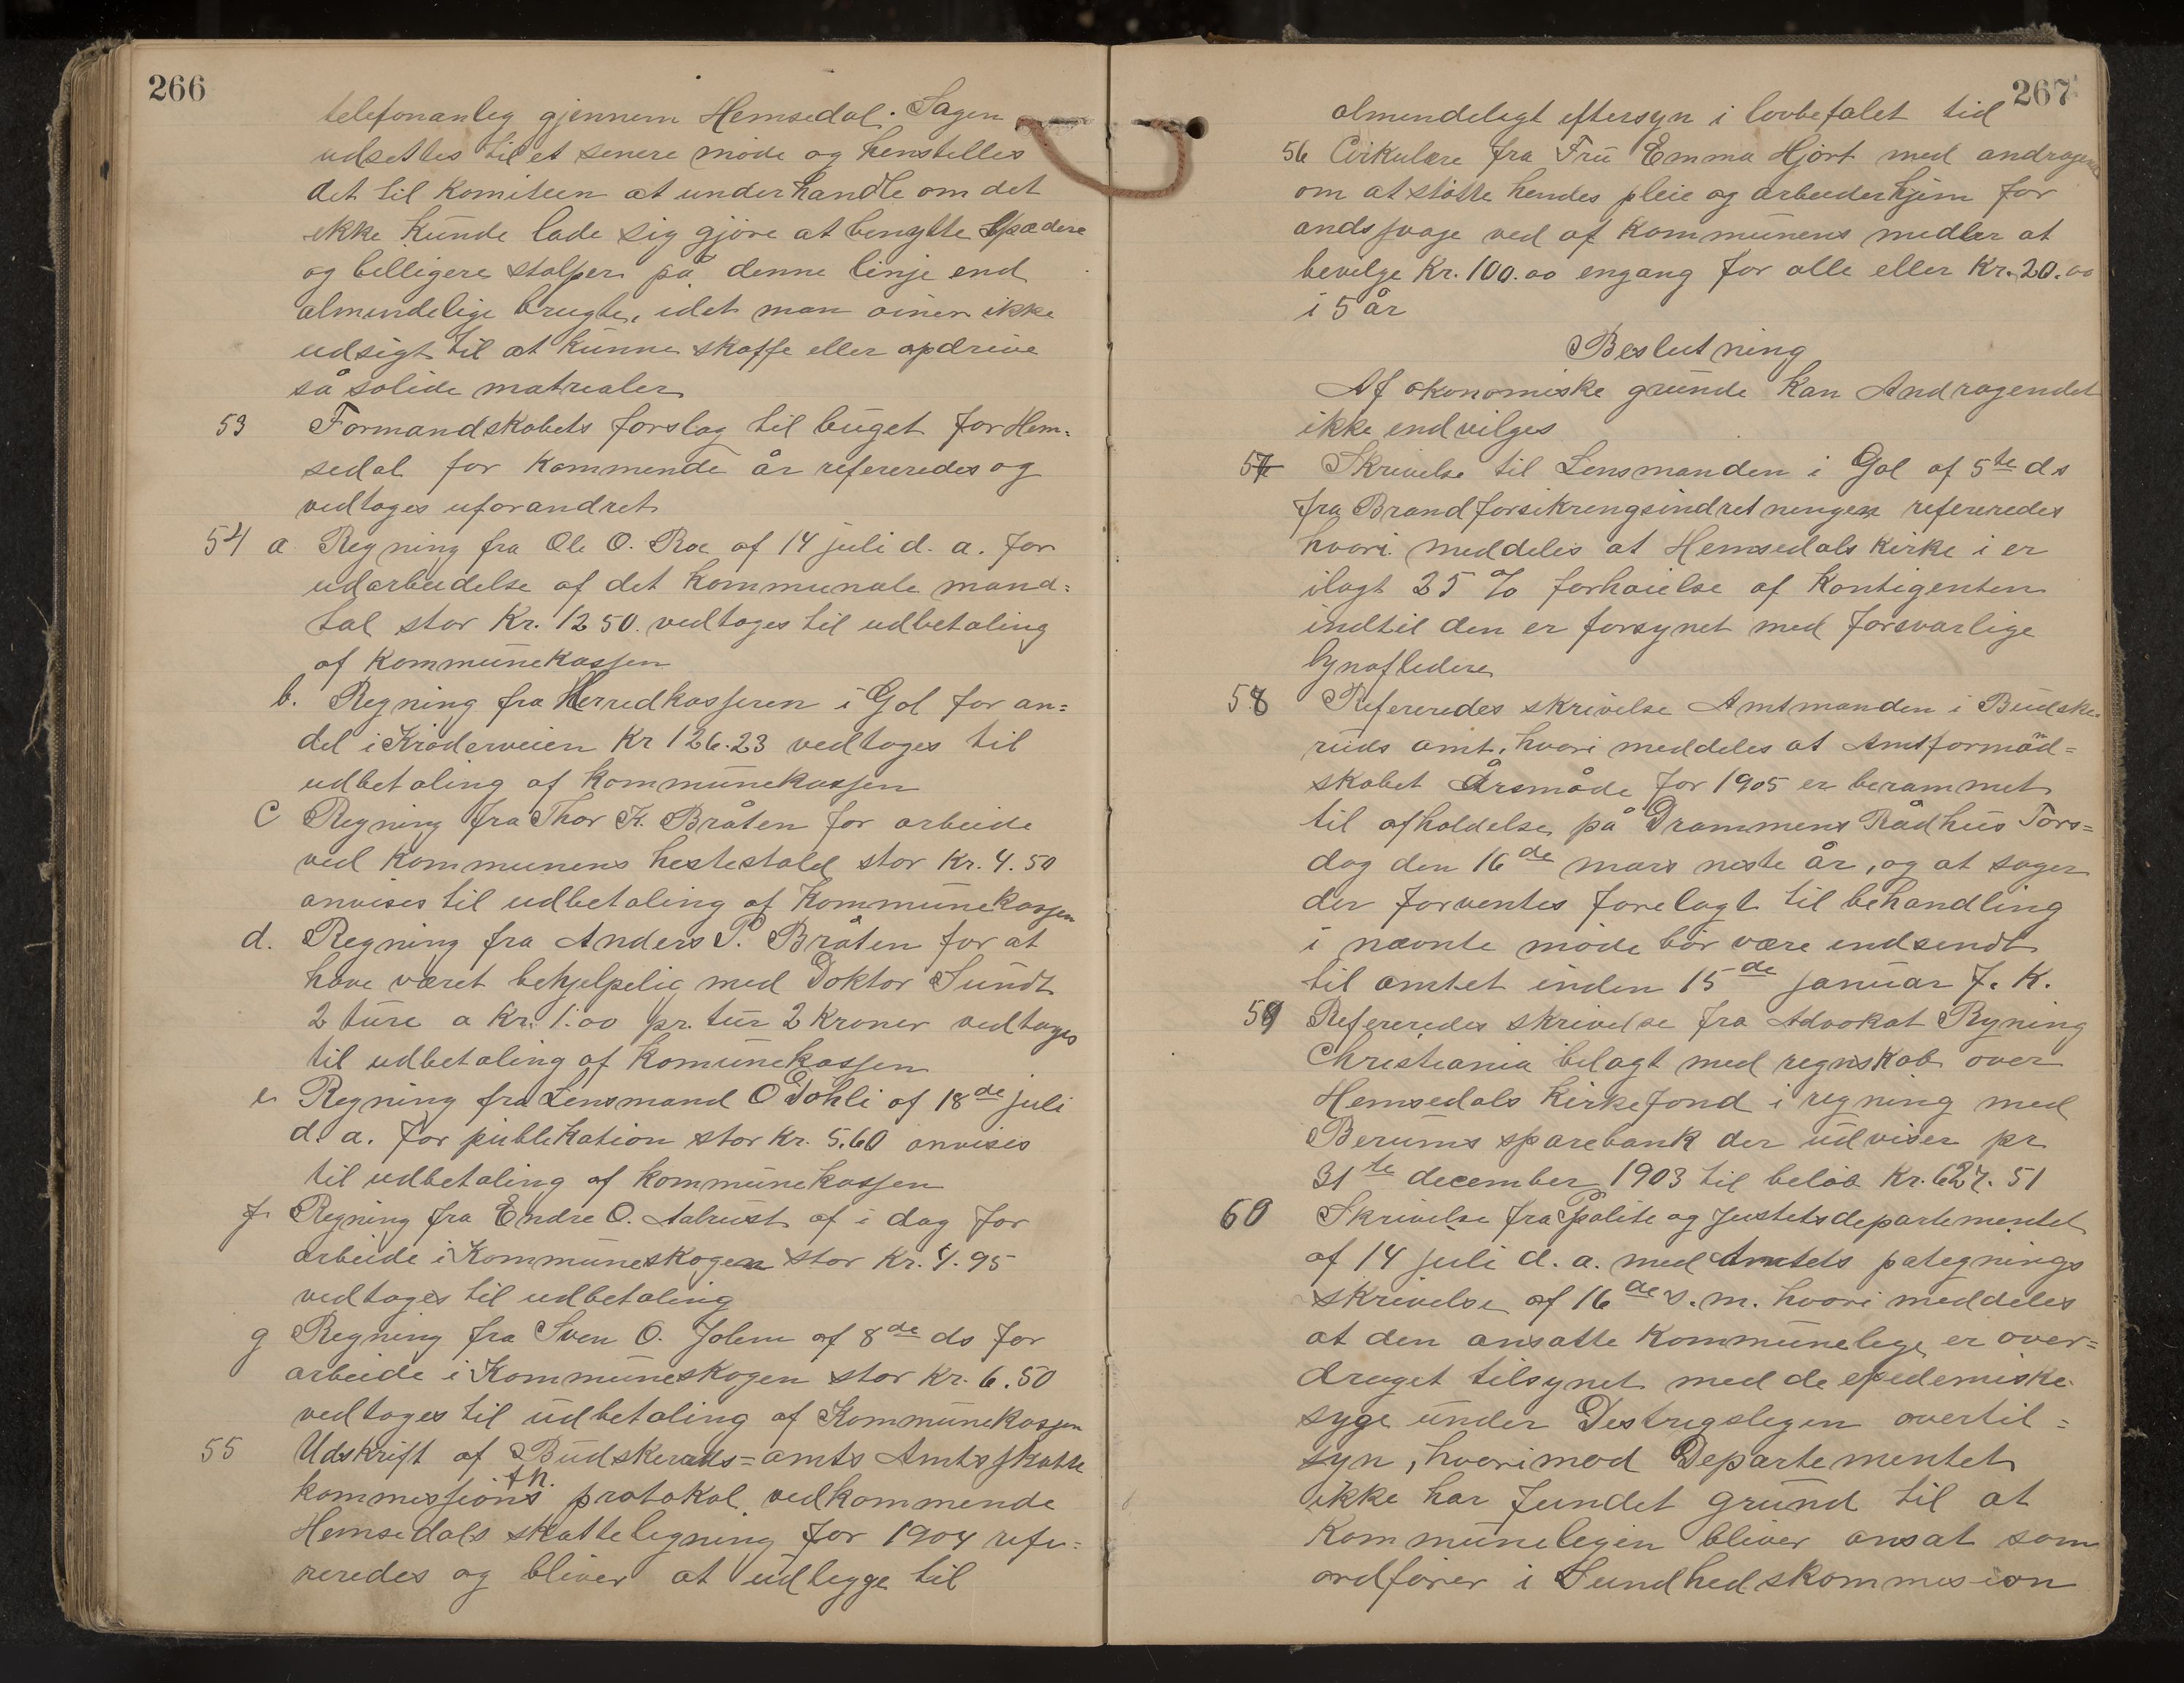 266
telefonanleg gjennem Hemsedal. Sagen
udsettes til et senere møde og henstilles
det til Komiteen at underhandle om det
ikke kunde lade sig gjøre at benytte spædere
og billigere stolper på denne linje end
almindelige brugte, idet man øiner ikke
udsigt til at kunne skaffe eller opdrive
så solide matrealer
53 Formandskabets forslag til buget for Hem-
sedal for kommende år refereredes og
vedtoges uforandret
54 a Regning fra Ole O. Roe af 14 juli d. a. for
udarbeidelse af det kommunale mand-
tal stor Kr. 12 50. vedtages til udbetaling
af Kommunekassen
b. Regning fra Herredkasseren i Gol for an-
del i Krøderveien Kr 126.23 vedtages til
udbetaling af kommunekassen
c Regning fra Thor K. Bråten for arbeide
ved kommunens hestestald stor Kr. 4.50
anvises til udbetaling af Kommunekassen
d. Regning fra Anders P. Bråten for at
have været behjelpelig med Doktor Sundt
2 ture a Kr. 1.00 pr. tur 2 Kroner vedtages
til udbetaling af Komunekassen
e Regning fra Lensmand O Døhli af 18de juli
d. a. for publikation stor Kr. 5.60 anvises
til udbetaling af kommunekassen
f. Regning fra Endre O. Aalrust af i dag for
arbeide i Kommuneskogen stor Kr. 4.95
vedtages til udbetaling
g Regning fra Sven O. Jolem af 8de ds for
arbeide i Kommuneskogen stor Kr. 6.50
vedtages til udbetaling af Kommunekassen
55 Udskrift af Budskeruds-amts Amtsskatte
kommissions protokol vedkommende
Hemsedals skatteligning for 1904 refe-
reredes og bliver at udlegge til
267
almindeligt eftersyn i lovbefalet tid
56 Cirkulære fra Fru Emma Hjort med andragende
om at støtte hendes pleie og arbeiderhjem for
andssvage ved af Kommunens midler at
bevilge Kr. 100.00 engang for alle eller Kr. 20.00
i 5 år
Beslutning
Af økonomiske grunde kan Andragendet
ikke endvilges
57 Skrivelse til Lensmanden i Gol af 5te ds
fra Brandforsikringsindretningen refereredes
hvori meddeles at Hemsedals Kirke i er
ilagt 25 % forhøielse af Kontigenten
indtil den er forsynet med forsvarlige
lynafledere
58 Refereredes skrivelse Amtmanden i Budske-
ruds amt, hvori meddeles at Amtformād-
skabet Årsmøde for 1905 er berammet
til afholdelse på Drammens Rådhus Tors-
dag den 16de mars neste år, og at sager
der forventes forelagt til behandling
i nævnte møde bør være indsendt
til amtet inden 15de januar f. K.
59 Refereredes skrivelse fra Advokat Ryning
Christiania bilagt med regnskab over
Hemsedals Kirkefond i regning med
Berums sparebank der udviser pr
31te december 1903 til beløb Kr. 627. 51
60 Skrivelse fra Politi og Justetsdepartementet
af 14 juli d. a. med Amtets pategnings
skrivelse af 16de s. m. hvori meddeles
at den ansatte Kommunelege er over-
draget tilsynet med de epedemiske
syge under Destrigslegen overtil-
syn, hvorimod Departementet
ikke har fundet grund til at
Kommunelegen bliver ansat som
ordfører i Sundhedskommision